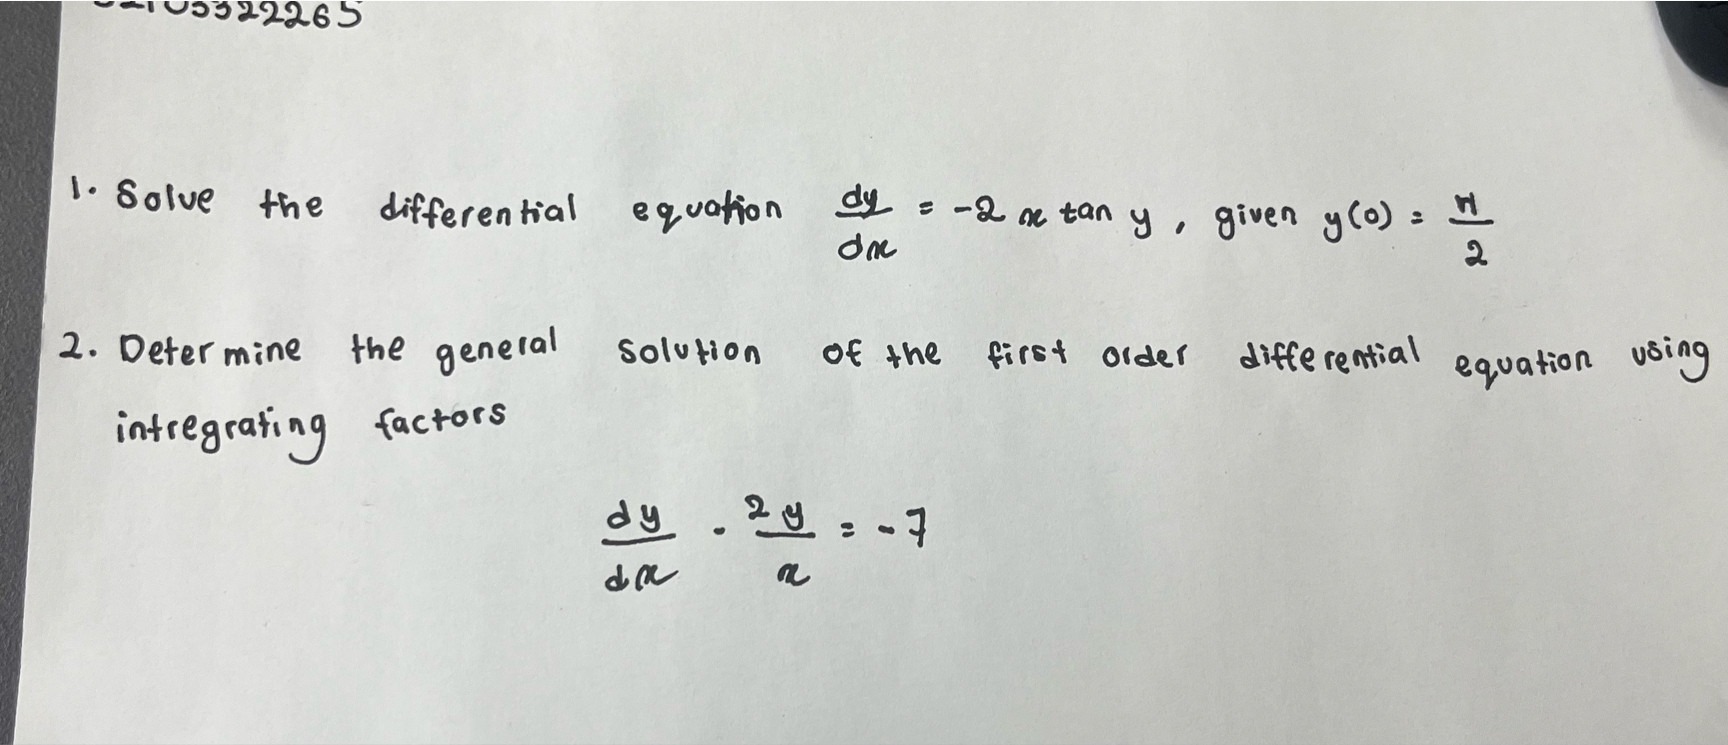 1. Solve the differential equation dy/dx = -2 x tan y, given y(0) = π/2
2. Determine the general solution of the first order differential equation using
intregrating factors
dy/dx - 2y/x = -7